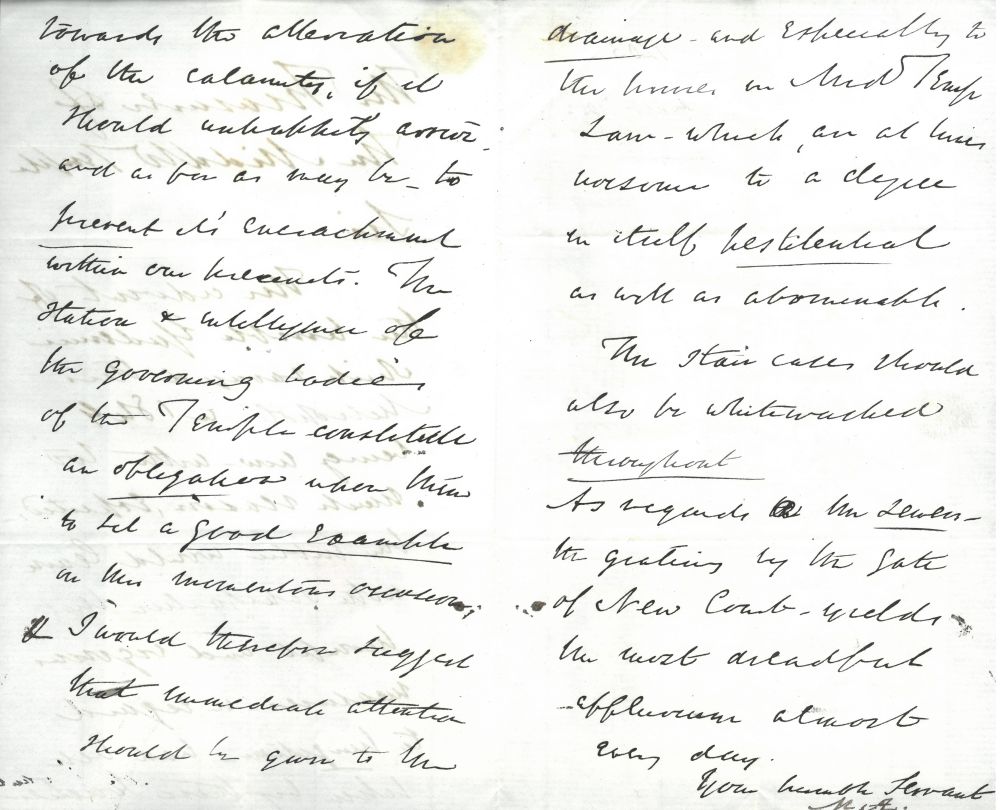 towards the alleviation
of the calamity, if it
should unhappily arrive,
and as far as may be - to
prevent it's encroachment
within our precincts. The
station & intelligence of
the governing bodies
of the Temple constitute
an obligation upon them
to set a good Example
on this momentous occasion,
& I would therefore suggest
that immediate attention
should be given to the
drainage - and Especially to
the houses in Mid Temp
Lane - which, are at times
noisome to a degree
in itself pestilential
as well as abominable.
The Stair cases should
also be whitewashed
throughout
As regards the sewers -
the grating by the Gate
of New Court - yields
the most dreadful
effluvium almost
every day.
Your humble Servant